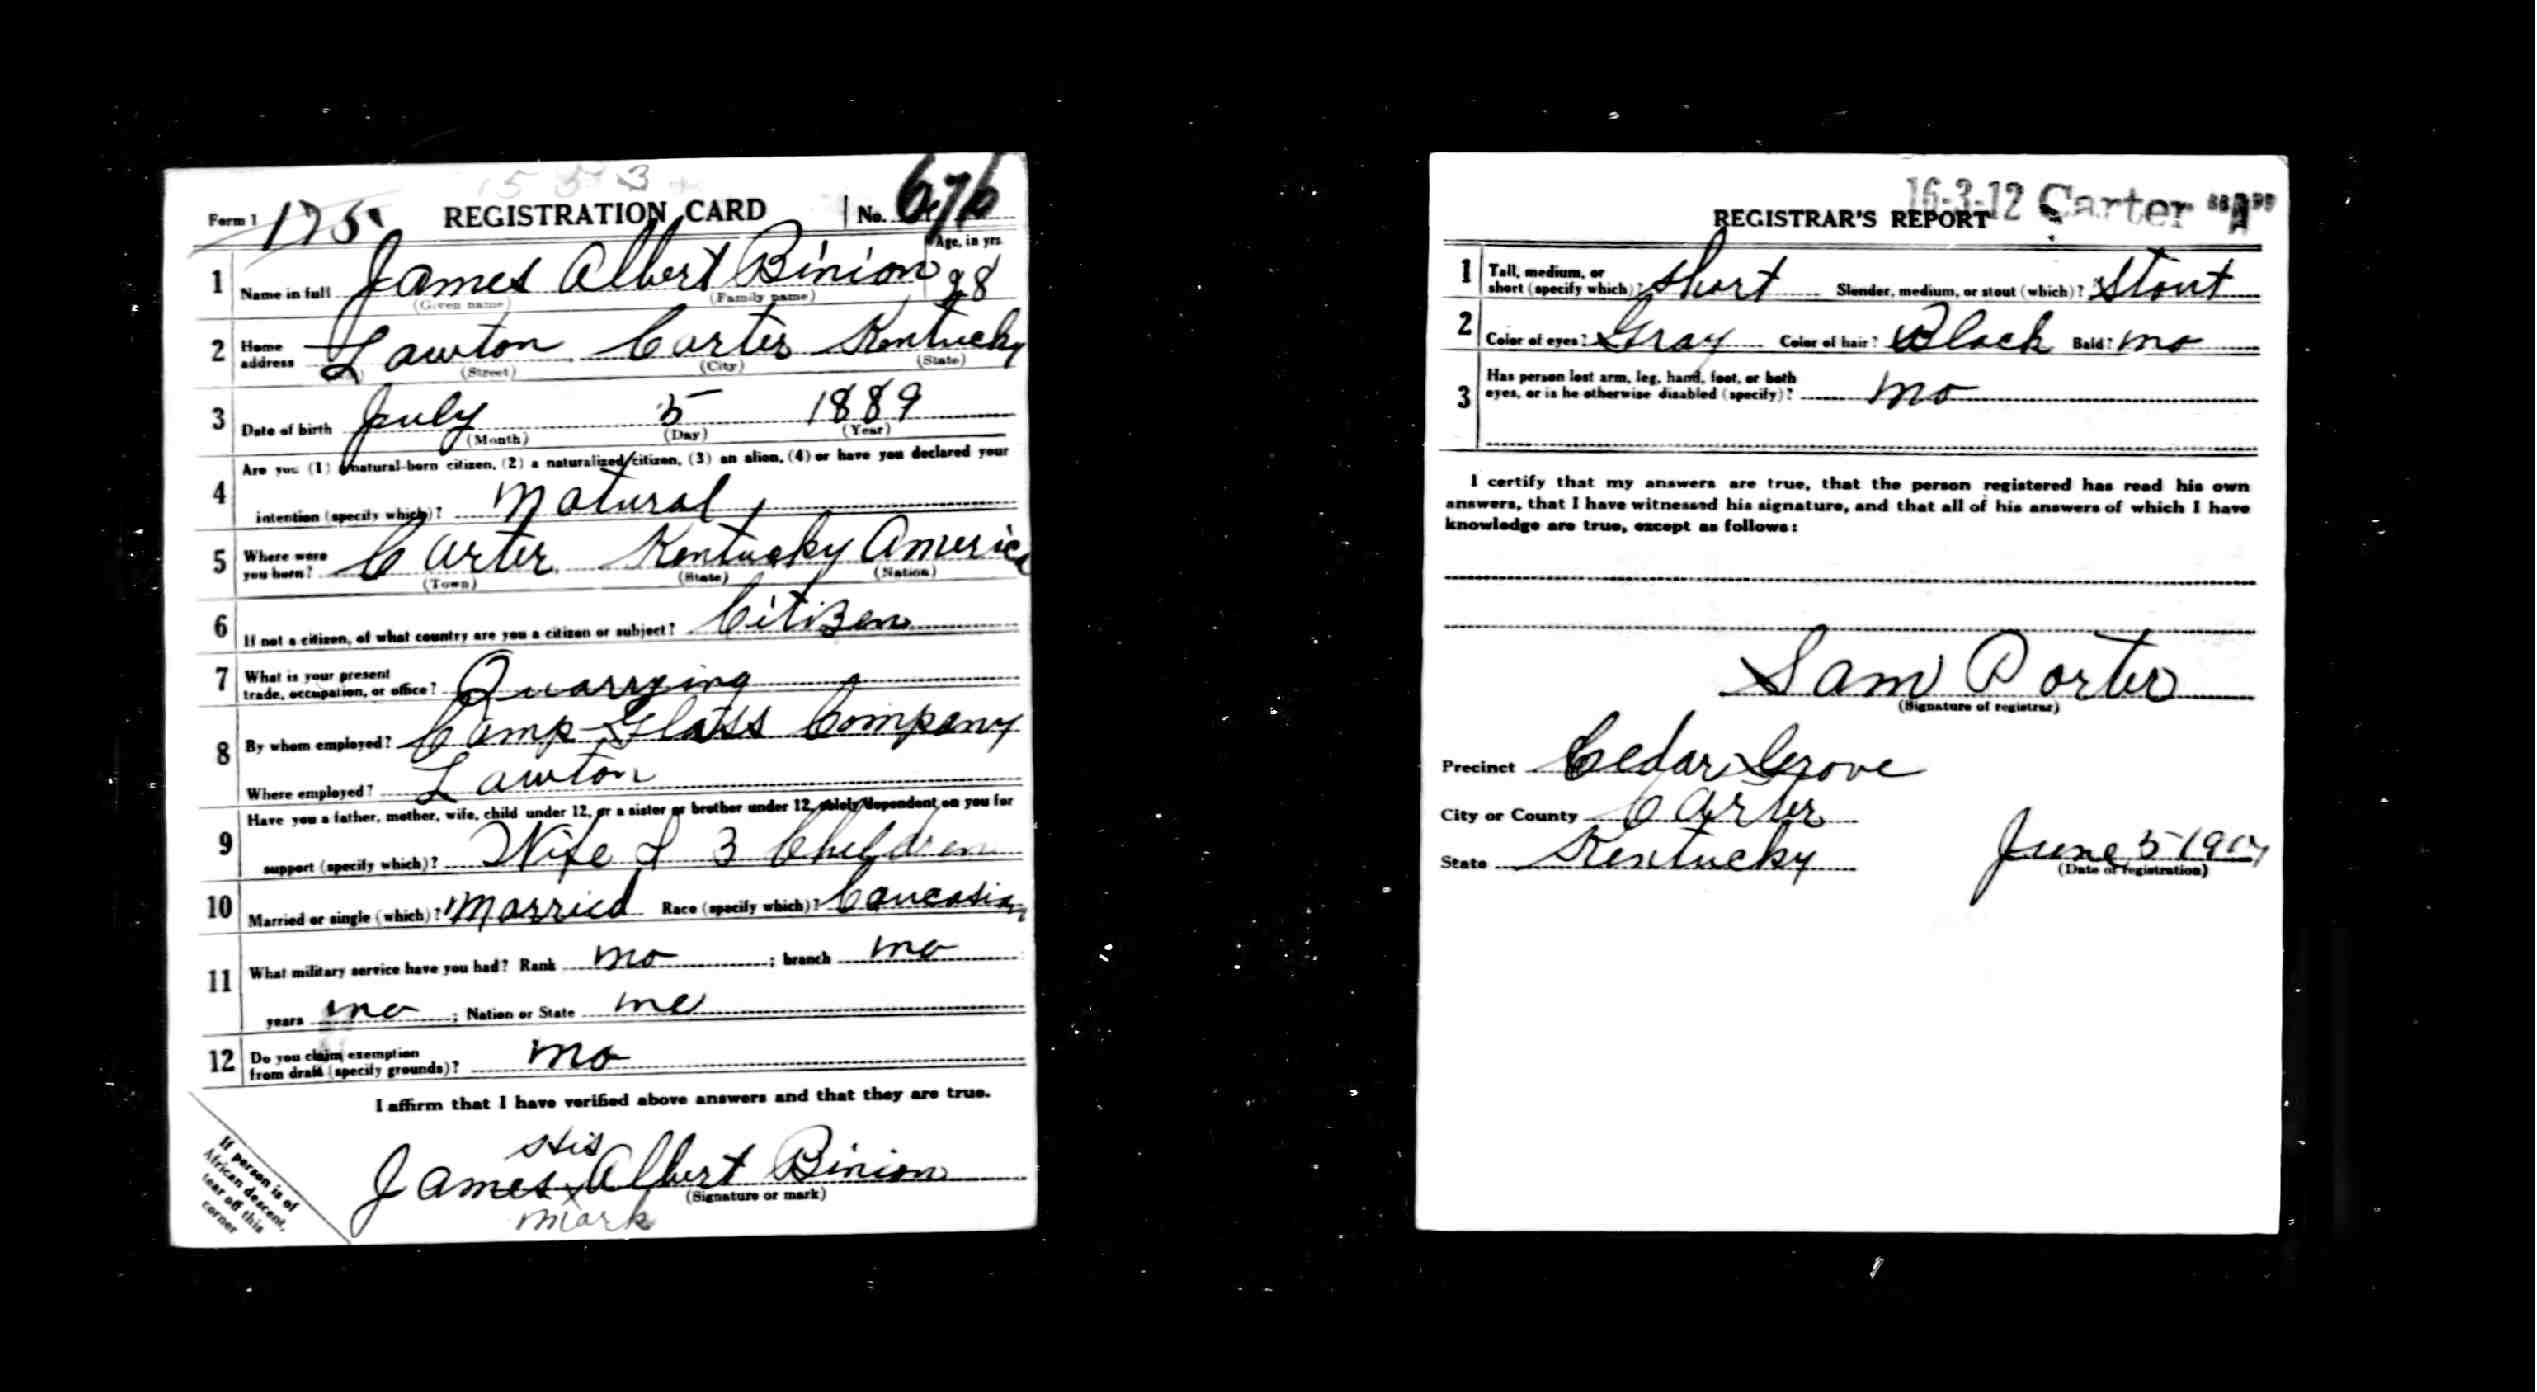 Form 1 175 REGISTRATION CARD No. 676
Age, in yrs.
1 Name in full James Albert Binion 28
(Given name) (Family name)
2 Home address Lawton Carter Kentucky
(Street) (City) (State)
3 Date of birth July 5 1889
(Month) (Day) (Year)
4 Are you (1) a natural-born citizen, (2) a naturalized citizen, (3) an alien, (4) or have you declared your
intention (specify which)? Natural
5 Where were you born? Carter Kentucky America
(Town) (State) (Nation)
6 If not a citizen, of what country are you a citizen or subject? Citizen
7 What is your present trade, occupation, or office? Quarrying
8 By whom employed? Camp Glass Company
Where employed? Lawton
9 Have you a father, mother, wife, child under 12, or a sister or brother under 12, solely dependent on you for
support (specify which)? Wife & 3 Children
10 Married or single (which)? Married Race (specify which)? Caucasian
11 What military service have you had? Rank no ; branch no
years no ; Nation or State no
12 Do you claim exemption from draft (specify grounds)? no
I affirm that I have verified above answers and that they are true.
His
James x Albert Binion
(Signature or mark)
mark
If person is of
African descent,
tear off this
corner
16-3-12 Carter "A"
REGISTRAR'S REPORT
1 Tall, medium, or short (specify which)? Short Slender, medium, or stout (which)? Stout
2 Color of eyes? Gray Color of hair? Black Bald? no
3 Has person lost arm, leg, hand, foot, or both
eyes, or is he otherwise disabled (specify)? no
I certify that my answers are true, that the person registered has read his own
answers, that I have witnessed his signature, and that all of his answers of which I have
knowledge are true, except as follows:
Sam Porter
(Signature of registrar)
Precinct Cedar Grove
City or County Carter
State Kentucky June 5 1917
(Date of registration)